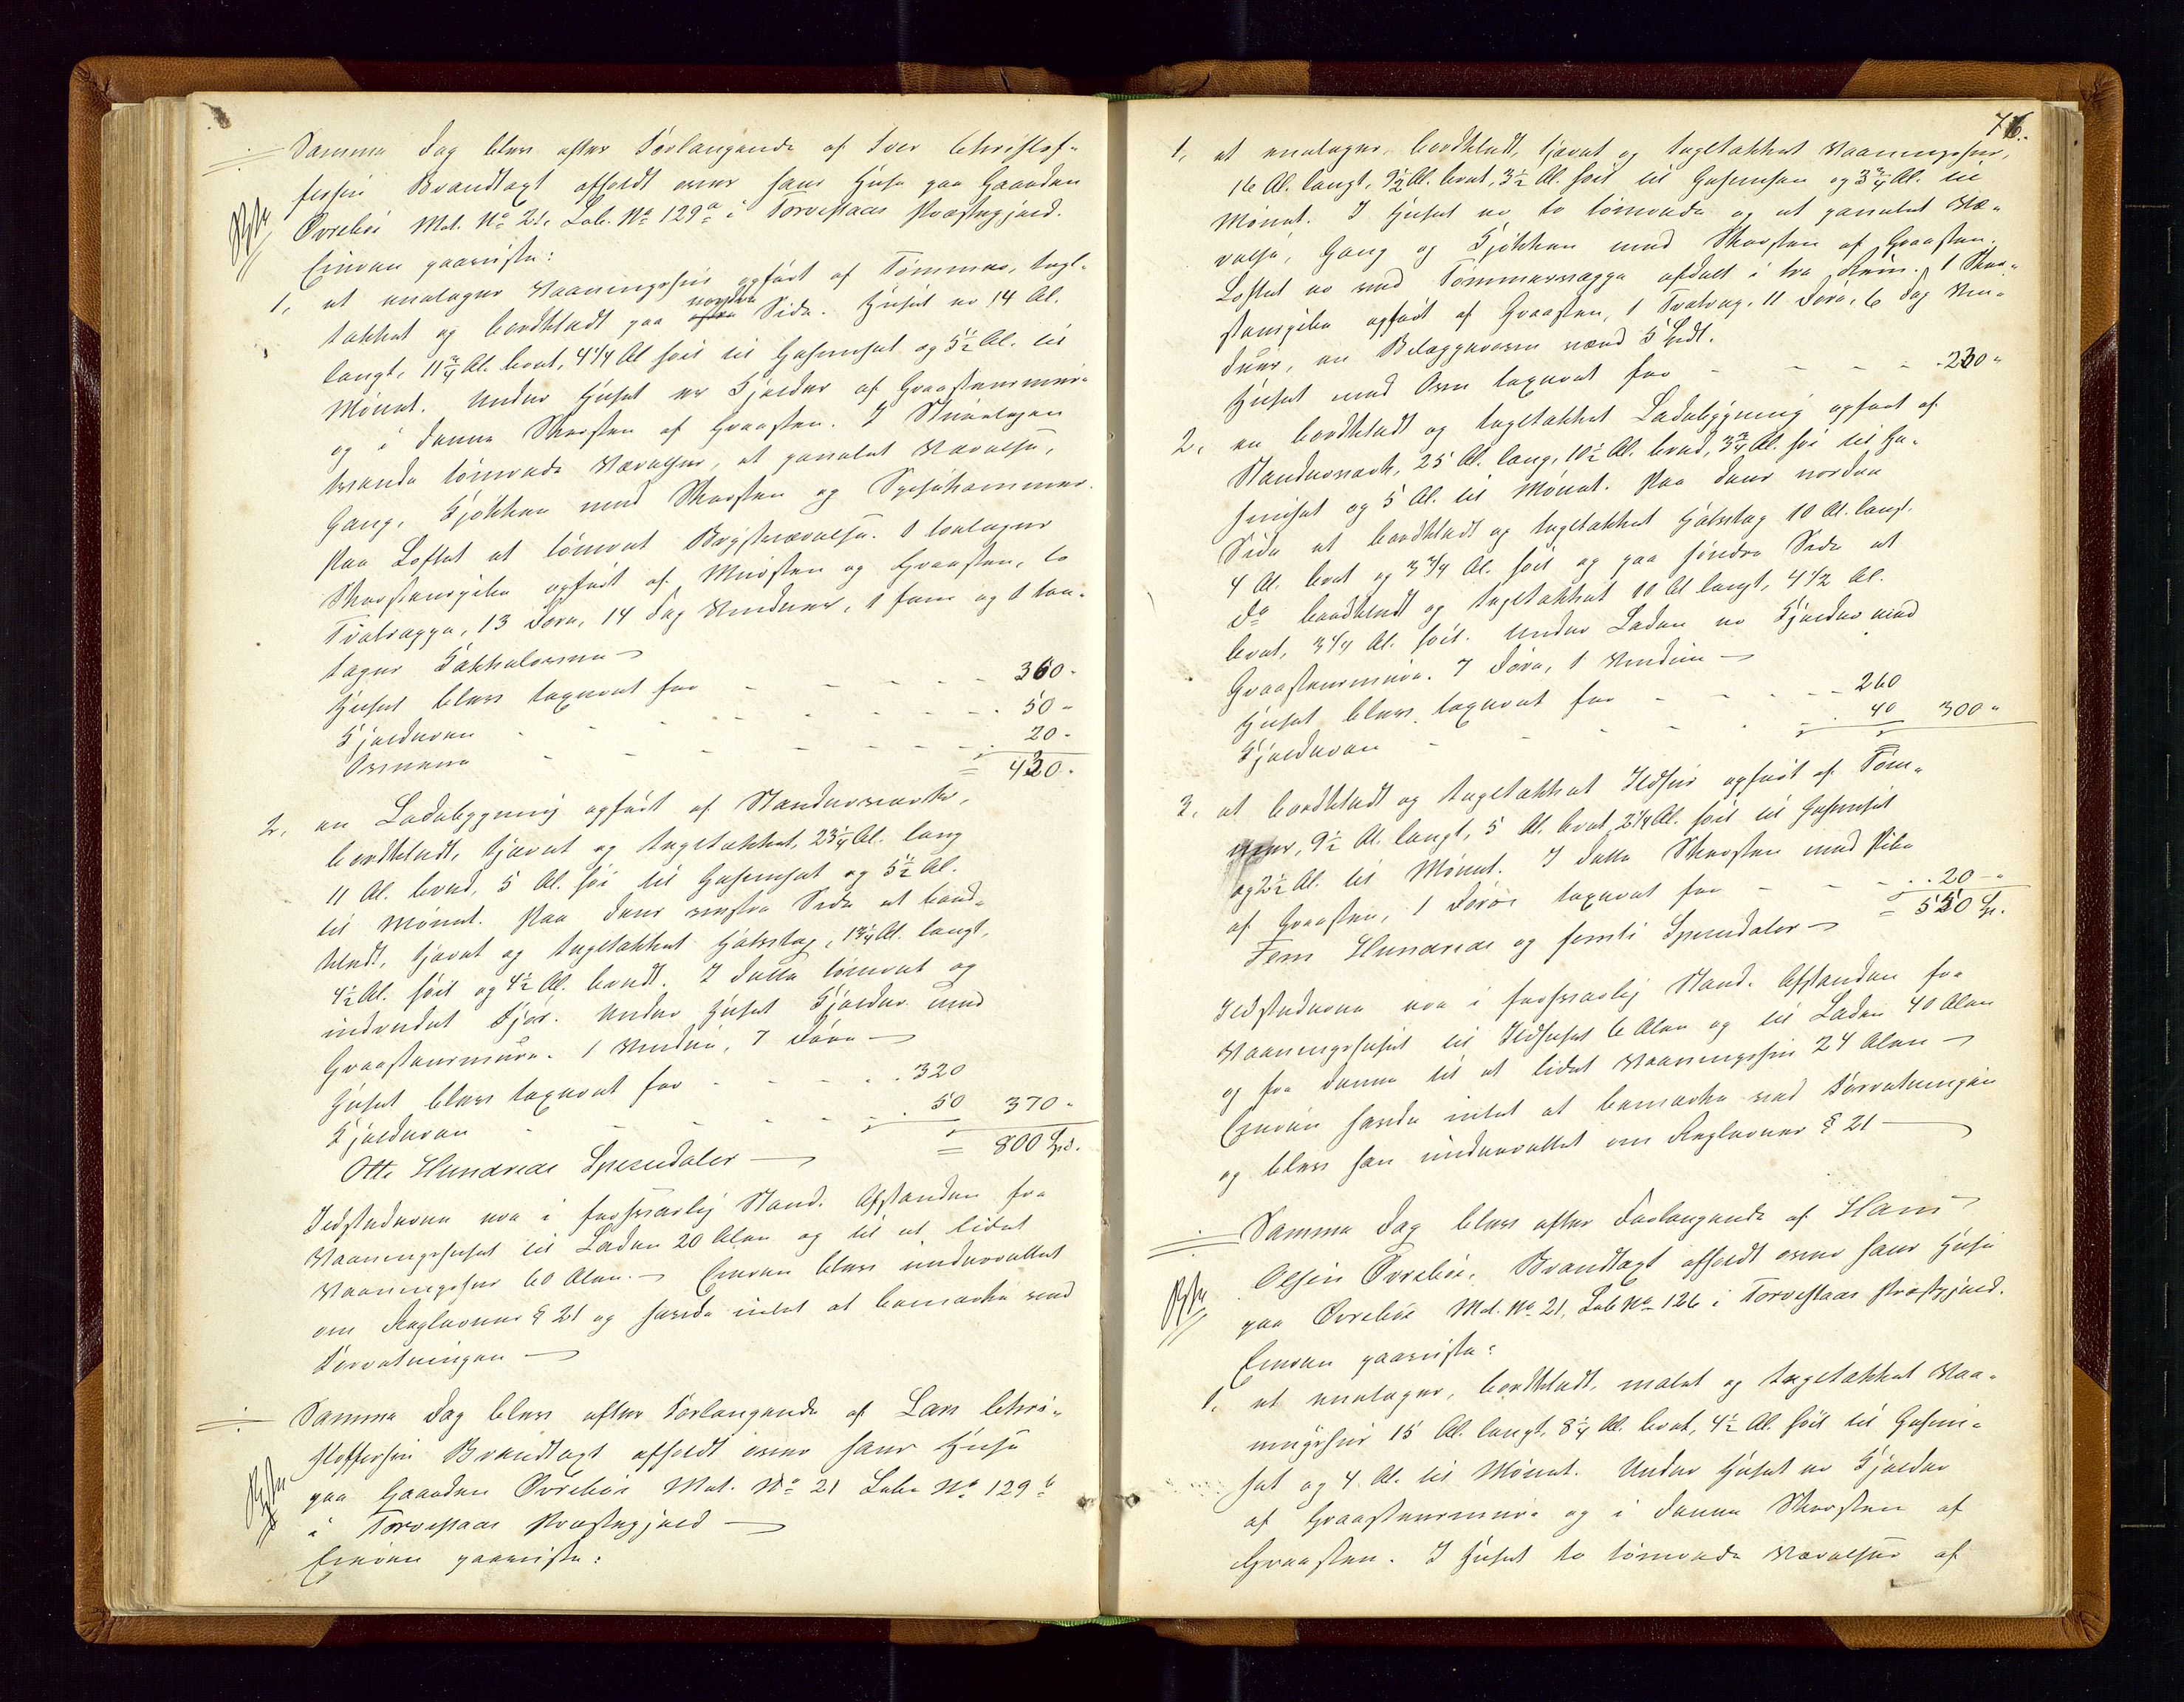 Samme Dag blev efter Forlangende af Iver Christof-
fersen Brandtaxt afholdt over hans Huse paa Gaarden
Øvrebøe Mat. No 21, Løb. No 129a i Torvestads Præstegjæld.
Eieren paaviste:
1, et enetages Vaaningshus opført af Tømmer, tegl-
takket og bordklædt paa nordre Side. Huset er 14 Al.
langt, 11 3/4 Al. bredt, 4 1/4 Al høit til Gesimset og 5 1/2 Al. til
Mønet. Under Huset er Kjelder af Graasteensmur
og i denne Skorsten af Graasten. I Stueetagen
trende tømrede Værelser, et panelet Værelse,
Gang, Kjøkken med Skorsten og Spisekammer.
Paa Loftet et tømret Brystværelse. 1 toetages
Skorstenspibe opført af Mursten og Graasten, 6
Tværvægge, 13 Døre, 14 Fag Vinduer, 1 fem og 1 tre-
tages Kakkelovne
Huset blev taxeret for - - - 360 "
Kjelderen - - - 50 "
Ovnene - - - 20 "
= 430 "
2, en Ladebygning opført af Standerværk,
bordklædt, tjæret og tegltakket, 23 1/4 Al. lang
11 Al. bred, 5 Al. høi til Gesimset og 5 1/2 Al.
til Mønet. Paa dens vestre Side et bord-
klædt, tjæret og tegltakket Halvtag, 13 1/4 Al. langt,
4 1/2 Al. høit og 4 1/2 Al. bredt. I dette tømret og
indredet Fjøs. Under Huset Kjelder med
Graasteensmure. 1 Vindue, 7 Døre
Huset blev taxeret for - - - 320
Kjelderen - - - 50 370 "
= 800 Spd.
Otte Hundrede Speciedaler
Ildstederne ere i forsvarlig Stand. Afstanden fra
Vaaningshuset til Laden 20 Alen og til et lidet
Vaaningshus 60 Alen. Eieren blev underrettet
om Reglernes § 21 og havde intet at bemærke ved
Forretningen
Samme Dag blev efter Forlangende af Lars Chri-
stoffersen Brandtaxt afholdt over hans Huse
paa Gaarden Øvrebøe Mat. No 21 Løbe No 129b
i Torvestads Præstegjæld
Eieren paaviste:
76.
1, et enetages, bordklædt, tjæret og tegltakket Vaaningshus,
16 Al. langt, 9 1/2 Al. bredt, 3 1/2 Al. høit til Gesimsen og 3 3/4 Al. til
Mønet. I Huset er to tømrede og et panelet Væ-
relse, Gang og Kjøkken med Skorsten af Graasten.
Loftet er med Tømmervægge afdelt i tre Rum. 1 Skor-
stenspibe opført af Graasten, 1 Tværvæg, 11 Døre, 6 Fag Vin-
duer, en Bilæggerovn værd 5 Spdl.
Huset med Ovn taxeret for - - - 230 "
2, en bordklædt og tegltakket Ladebygning opført af
Standerværk, 25 Al. lang, 10 1/2 Al. bred, 3 3/4 Al. høi til Ge-
simset og 5 Al. til Mønet. Paa dens nordre
Side et bordklædt og tegltakket Halvtag 10 Al. langt,
4 Al. bredt og 3 3/4 Al. høit og paa søndre Side et
do bordklædt og tegltakket 10 Al langt, 4 1/2 Al.
bredt, 3 1/4 Al. høit. Under Laden er Kjelder med
Graasteensmure. 7 Døre, 1 Vindue
Huset blev taxeret for - - - 260
Kjelderen - - - 40 300 "
3, et bordklædt og tegltakket Ildhus opført af Tøm-
mer, 9 1/2 Al. langt, 5 Al. bredt, 2 1/4 Al. høit til Gesimset
og 2 1/2 Al. til Mønet. I dette Skorsten med Pibe
af Graasten, 1 Døre taxeret for - - - 20 "
= 550 Sp.
Fem Hundrede og femti Speciedaler
Ildstederne ere i forsvarlig Stand. Afstanden fra
Vaaningshuset til Ildhuset 6 Alen og til Laden 40 Alen
og fra denne til et lidet Vaaningshus 24 Alen
Eieren havde intet at bemærke ved Forretningen
og blev han underrettet om Reglernes § 21
Samme Dag blev efter Forlangende af Hans
Olsen Øvrebøe, Brandtaxt afholdt over hans Huse
paa Øvrebøe Mat. No 21, Løb No 126 i Torvestads Præstgjæld.
Eieren paaviste:
1, et enetages, bordklædt, malet og tegltakket Vaa-
ningshus 15 Al. langt, 8 1/4 Al. bredt, 4 1/2 Al. høit til Gesim-
set og 4 Al. til Mønet. Under Huset er Kjelder
af Graasteensmure og i denne Skorsten af
Graasten. I Huset to tømrede Værelser af